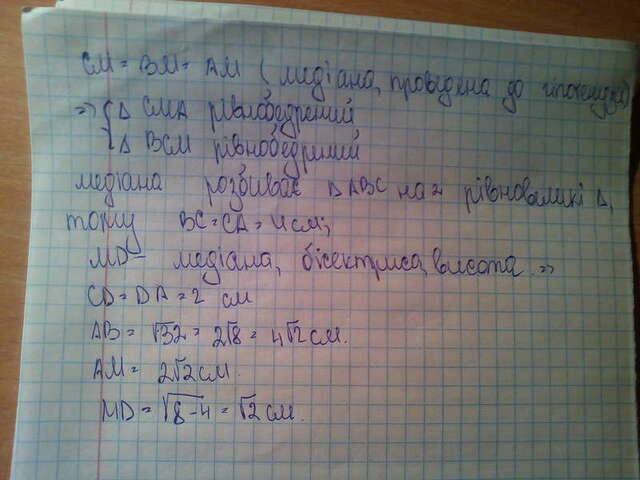 CM = BM = AM ( медіана, проведена до гіпотенузи)
=> { Δ CMA рівнобедрений
{ Δ BCM рівнобедрений
медіана розбиває ΔABC на 2 рівновеликі Δ,
тому BC = CA = 4 см;
MD – медіана, бісектриса, висота =>
CD = DA = 2 см
AB = √32 = 2√8 = 4√2 см.
AM = 2√2 см.
MD = √8-4 = √2 см.